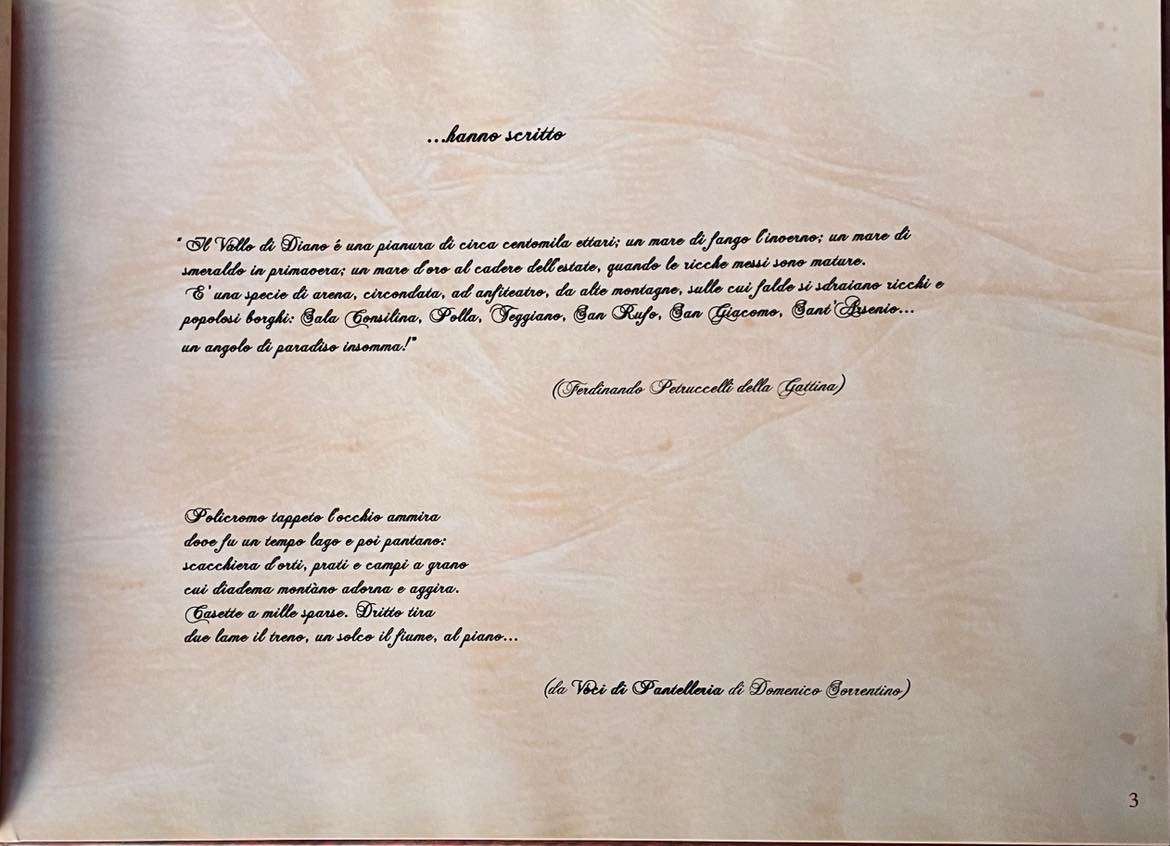 ...hanno scritto
"Il Vallo di Diano é una pianura di circa centomila ettari; un mare di fango l'inverno; un mare di
smeraldo in primavera; un mare d'oro al cadere dell'estate, quando le ricche messi sono mature.
E' una specie di arena, circondata, ad anfiteatro, da alte montagne, sulle cui falde si sdraiano ricchi e
popolosi borghi: Sala Consilina, Polla, Teggiano, San Rufo, San Giacomo, Sant'Arsenio...
un angolo di paradiso insomma!"
(Ferdinando Petruccelli della Gattina)
Policromo tappeto l'occhio ammira
dove fu un tempo lago e poi pantano:
scacchiera d'orti, prati e campi a grano
cui diadema montàno adorna e aggira.
Casette a mille sparse. Dritto tira
due lame il treno, un solco il fiume, al piano...
(da Voci di Pantelleria di Domenico Sorrentino)
3